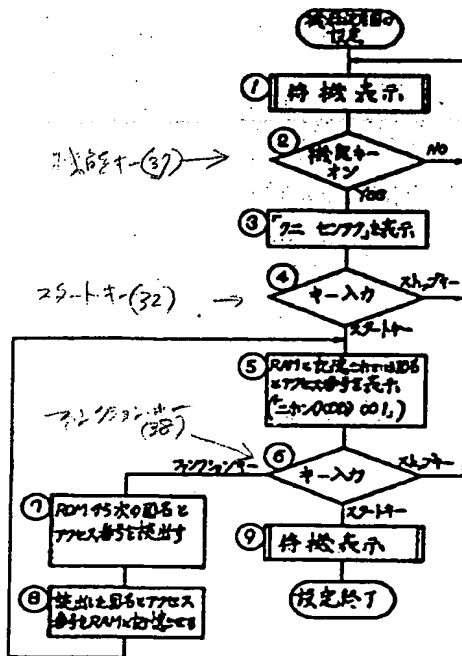 設定
①
待機表示
機能キー(37)
②
機能キー
オン
NO
YES
③
「クニ センタク」を表示
④
スタートキー(32)
キー入力
ストップキー
スタートキー
⑤
RAMに記憶されている国名
とアクセス番号を表示
(「ニホン(000) 001」)
ファンクションキー
(38)
⑥
ファンクションキー
キー入力
ストップキー
スタートキー
⑦
ROMから次の国名と
アクセス番号を読出す
⑨
待機表示
⑧
読出した国名とアクセス
番号をRAMに記憶させる
設定終了